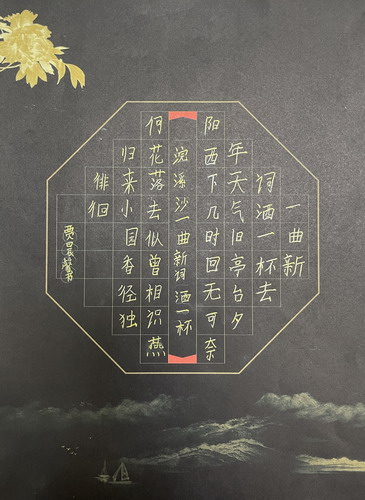 一曲新
词酒一杯去
年天气旧亭台夕
阳西下几时回无可奈
浣溪沙一曲新词 酒一杯
何花落去似曾相识燕
归来小园香径独
徘徊
贾